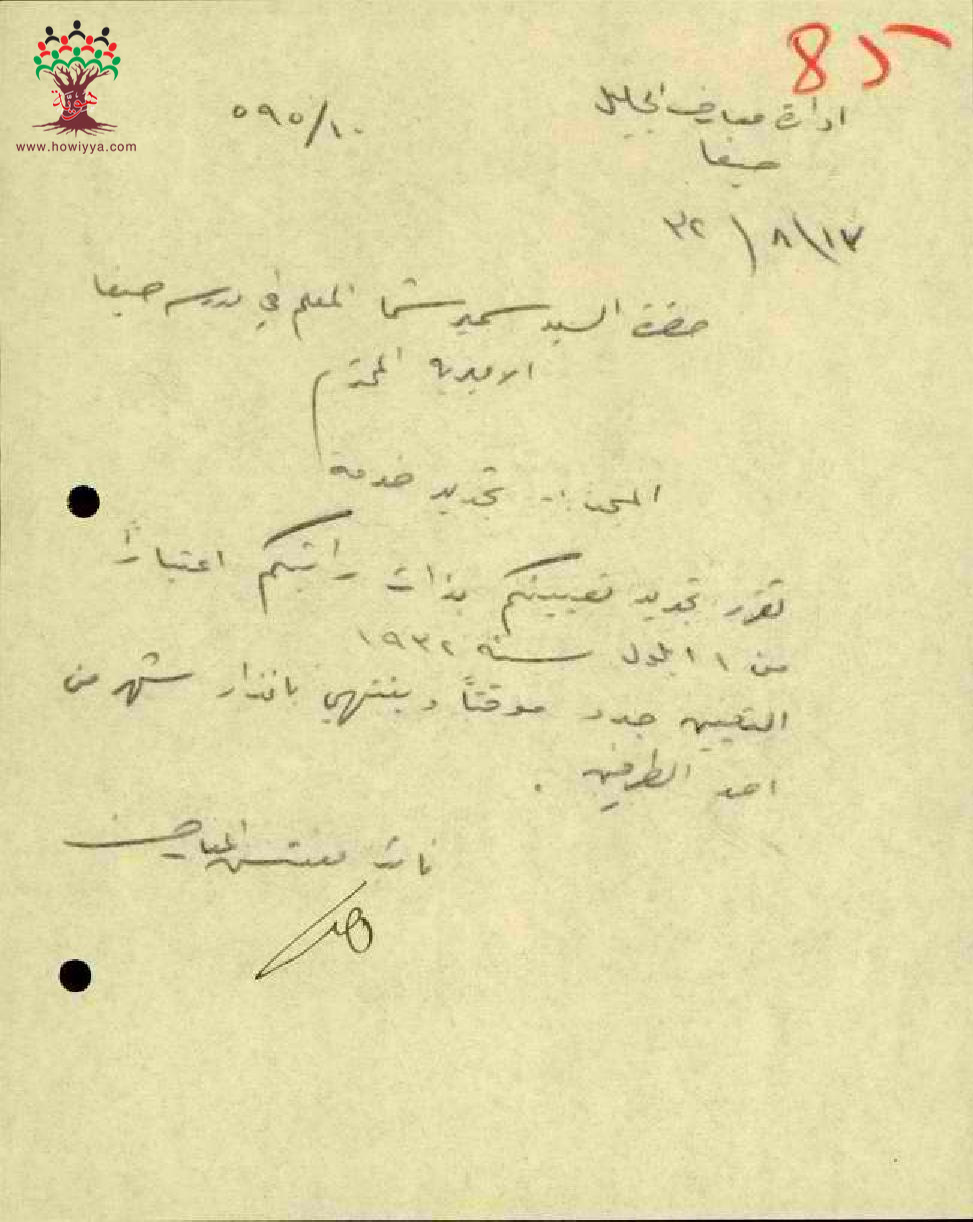 85
هوية
www.howiyya.com
ادارة معارف الجليل
٥٩٥/١٠
حيفا
١٧/٨/٣٢
حضرة السيد سمير شما المعلم في مدرسة حيفا
الاميرية المحترم
المبحث :- تجديد خدمة
تقرر تجديد تعيينكم بذات راتبكم اعتباراً
من ١ ايلول سنة ١٩٣٢
التعيين جدد موقتاً وينتهي بانذار شهر من
احد الطرفين .
نائب مفتش المعارف